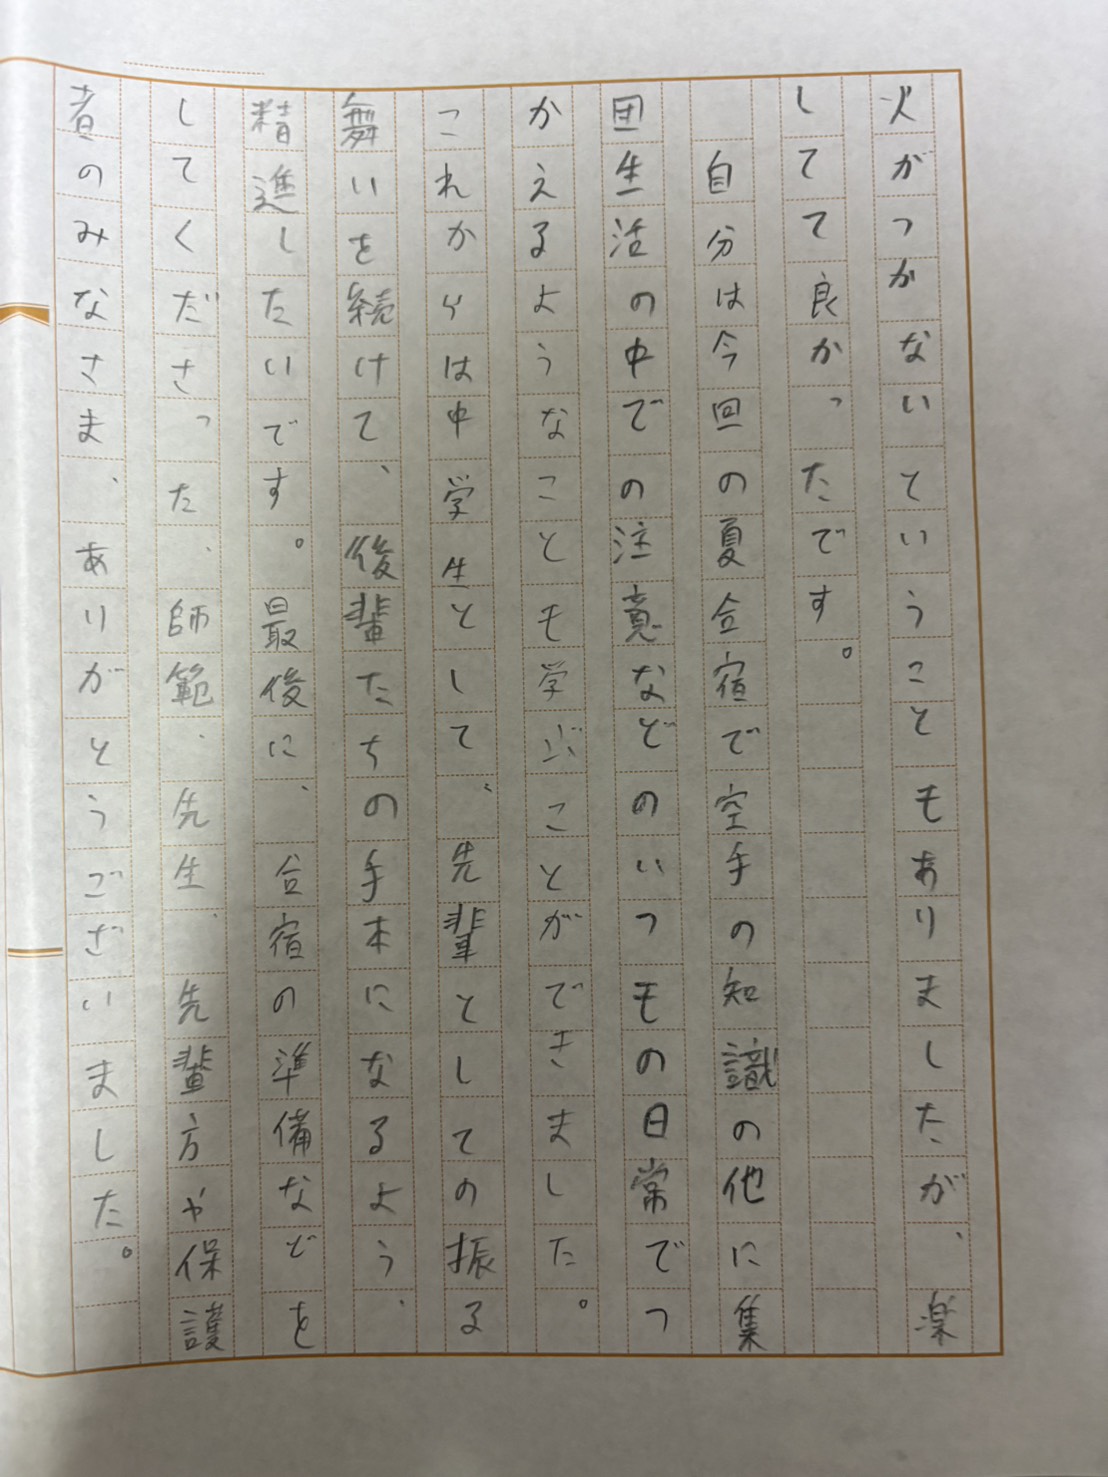 火がつかないということもありましたが、楽
してて良かったです。
自分は今回の夏合宿で空手の知識の他に集
団生活の中での注意などのいつもの日常でつ
かえるようなことも学ぶことができました。
これからは中学生として、先輩としての振る
舞いを続けて、後輩たちの手本になるよう、
精進したいです。最後に、合宿の準備などを
してくださった、師範、先生、先輩方や保護
者のみなさま、ありがとうございました。